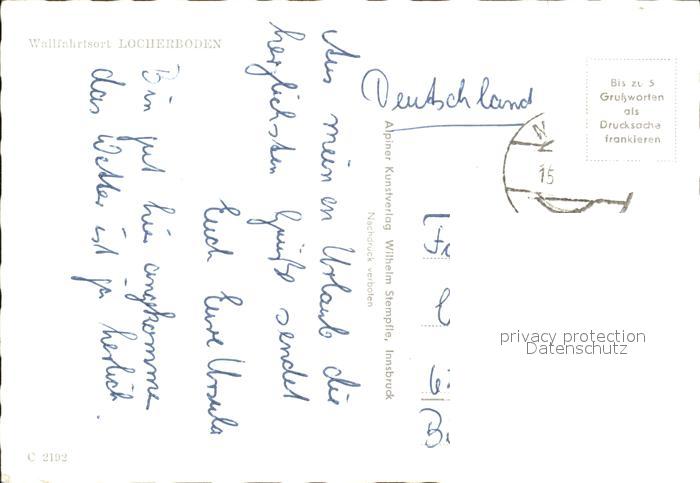 Wallfahrtsort LOCHERBODEN
Aus meinen Urlaub die
herzlichsten Grüße sendet
Euch Eure Ursula
Bin gut hier angekommen
das Wetter ist ja herlich.
C 2192
Alpiner Kunstverlag Wilhelm Stempfle, Innsbruck
Nachdruck verboten
Deutschland
Bis zu 5
Grußworten
als
Drucksache
frankieren
15
privacy protection
Datenschutz